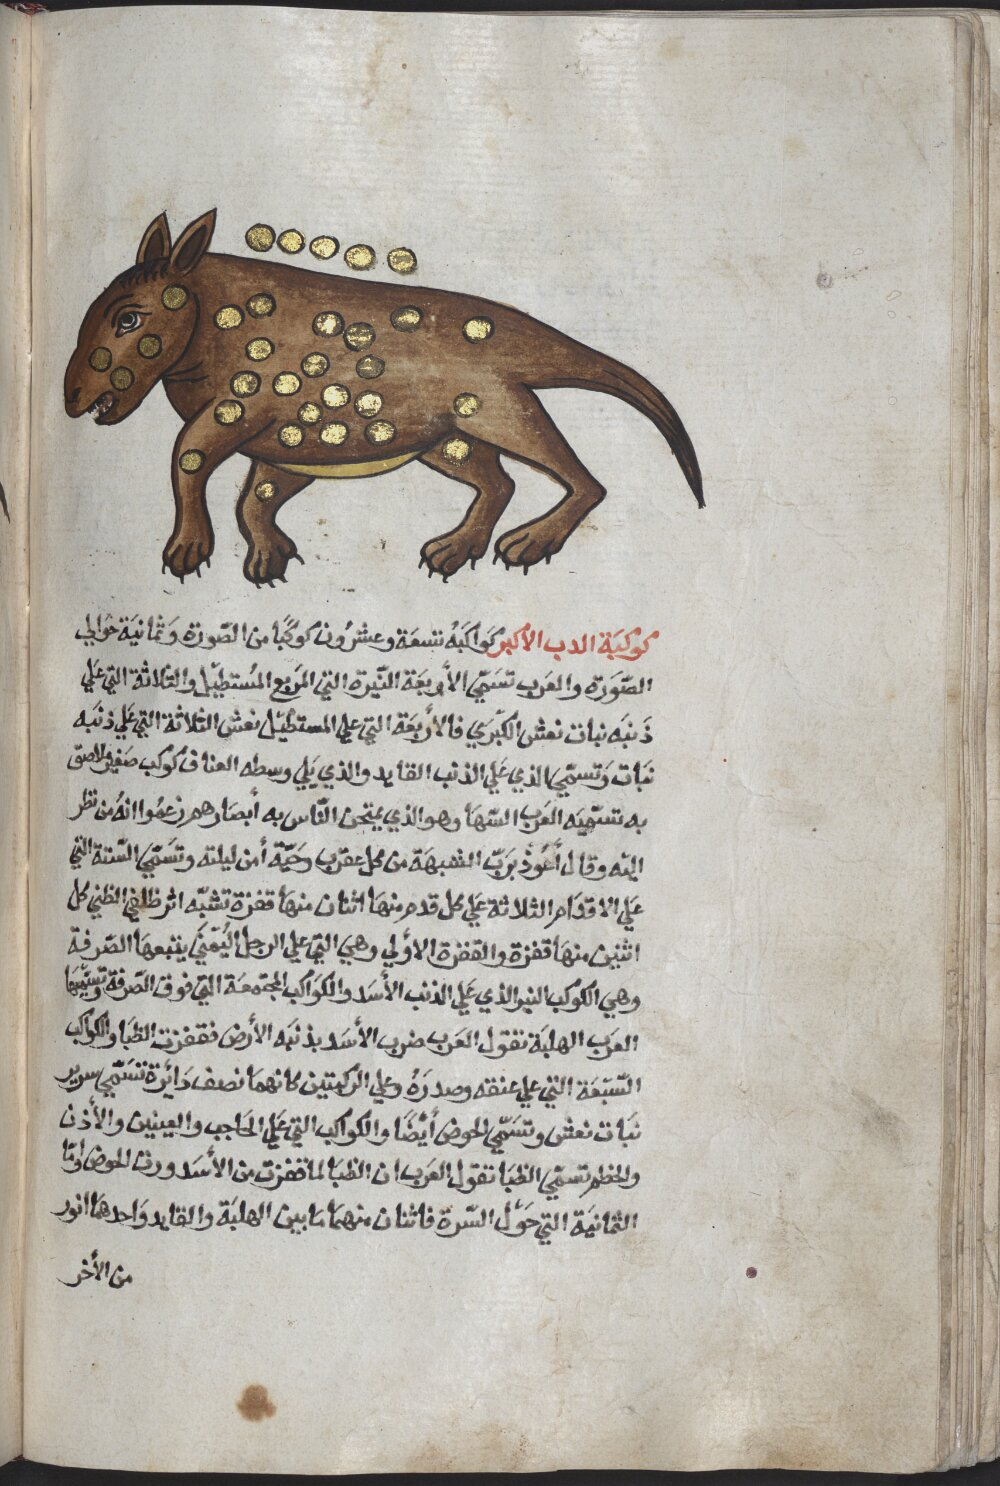 كوكبَة الدب الأكبر كَواكبَهُ تسعَة وعشرُون كوكبًا من الصّورة وَثمانيَة حَوالي
الصّوَرة والعَرب تسَمّي الأربعَة النّيرة التي المربع المُستطيْل والثلاثة التي عَلي
ذَنبَه بَنات نعش الكُبرَي فالأربَعَة التي علي المستطيْل نعش الثلاثة التي عَلي ذنبَه
بَنات وَتسمّي الذي عَلي الذنب القايد والذي يَلي وسطه العناق كوكب صَغير لاصق
به تسَمّيه العَرب السّهَا وهو الذي يمتحن النّاس به أبصَارهم زعمُوا انهُ من نظر
اليْه وقال أعُوذ برَبّ الشبهَة من كل عقرب وَحَيّة أمن ليلته وتسَمّي الستة التي
عَلي الاقدَام الثلاثة عَلي كل قدم منهَا اثنان منهَا قفزة تشبّه اثر ظلفي الظبي كل
اثنين منهَا قفزة والقفزة الاوُلي وهي التي علي الرجل اليُمْنيَ يتبعهَا الصّرفة
وهي الكوكب النيرالذي عَلي الذنب الأسَد والكوَاكب المجتمعَة التي فوق الصّرفة وتسَمّيهَا
العَرب الهلبَة تقول العَرب ضرب الأسَد بذنبَه الأرض فقفزت الظبَا والكواكب
السّبْعَة التي علي عنقه وصدرَهُ وعلي الركبتين كانهمَا نصف دَائرة تسَمّي سرير
بَنات نعش وتسَمّي الحوض أيْضًا والكواكب التي عَلي الحَاجب والعينين والأذن
والخطم تسَمّي الظبَا تقول العَرب ان الظبَا لما قفزت من الأسَد وردت الحوض وامّا
الثمانيَة التي حَوْل السّرة فاثنان منهمَا مَا بين الهلبَة والقايد وَاحدهمَا انور
من الأخر